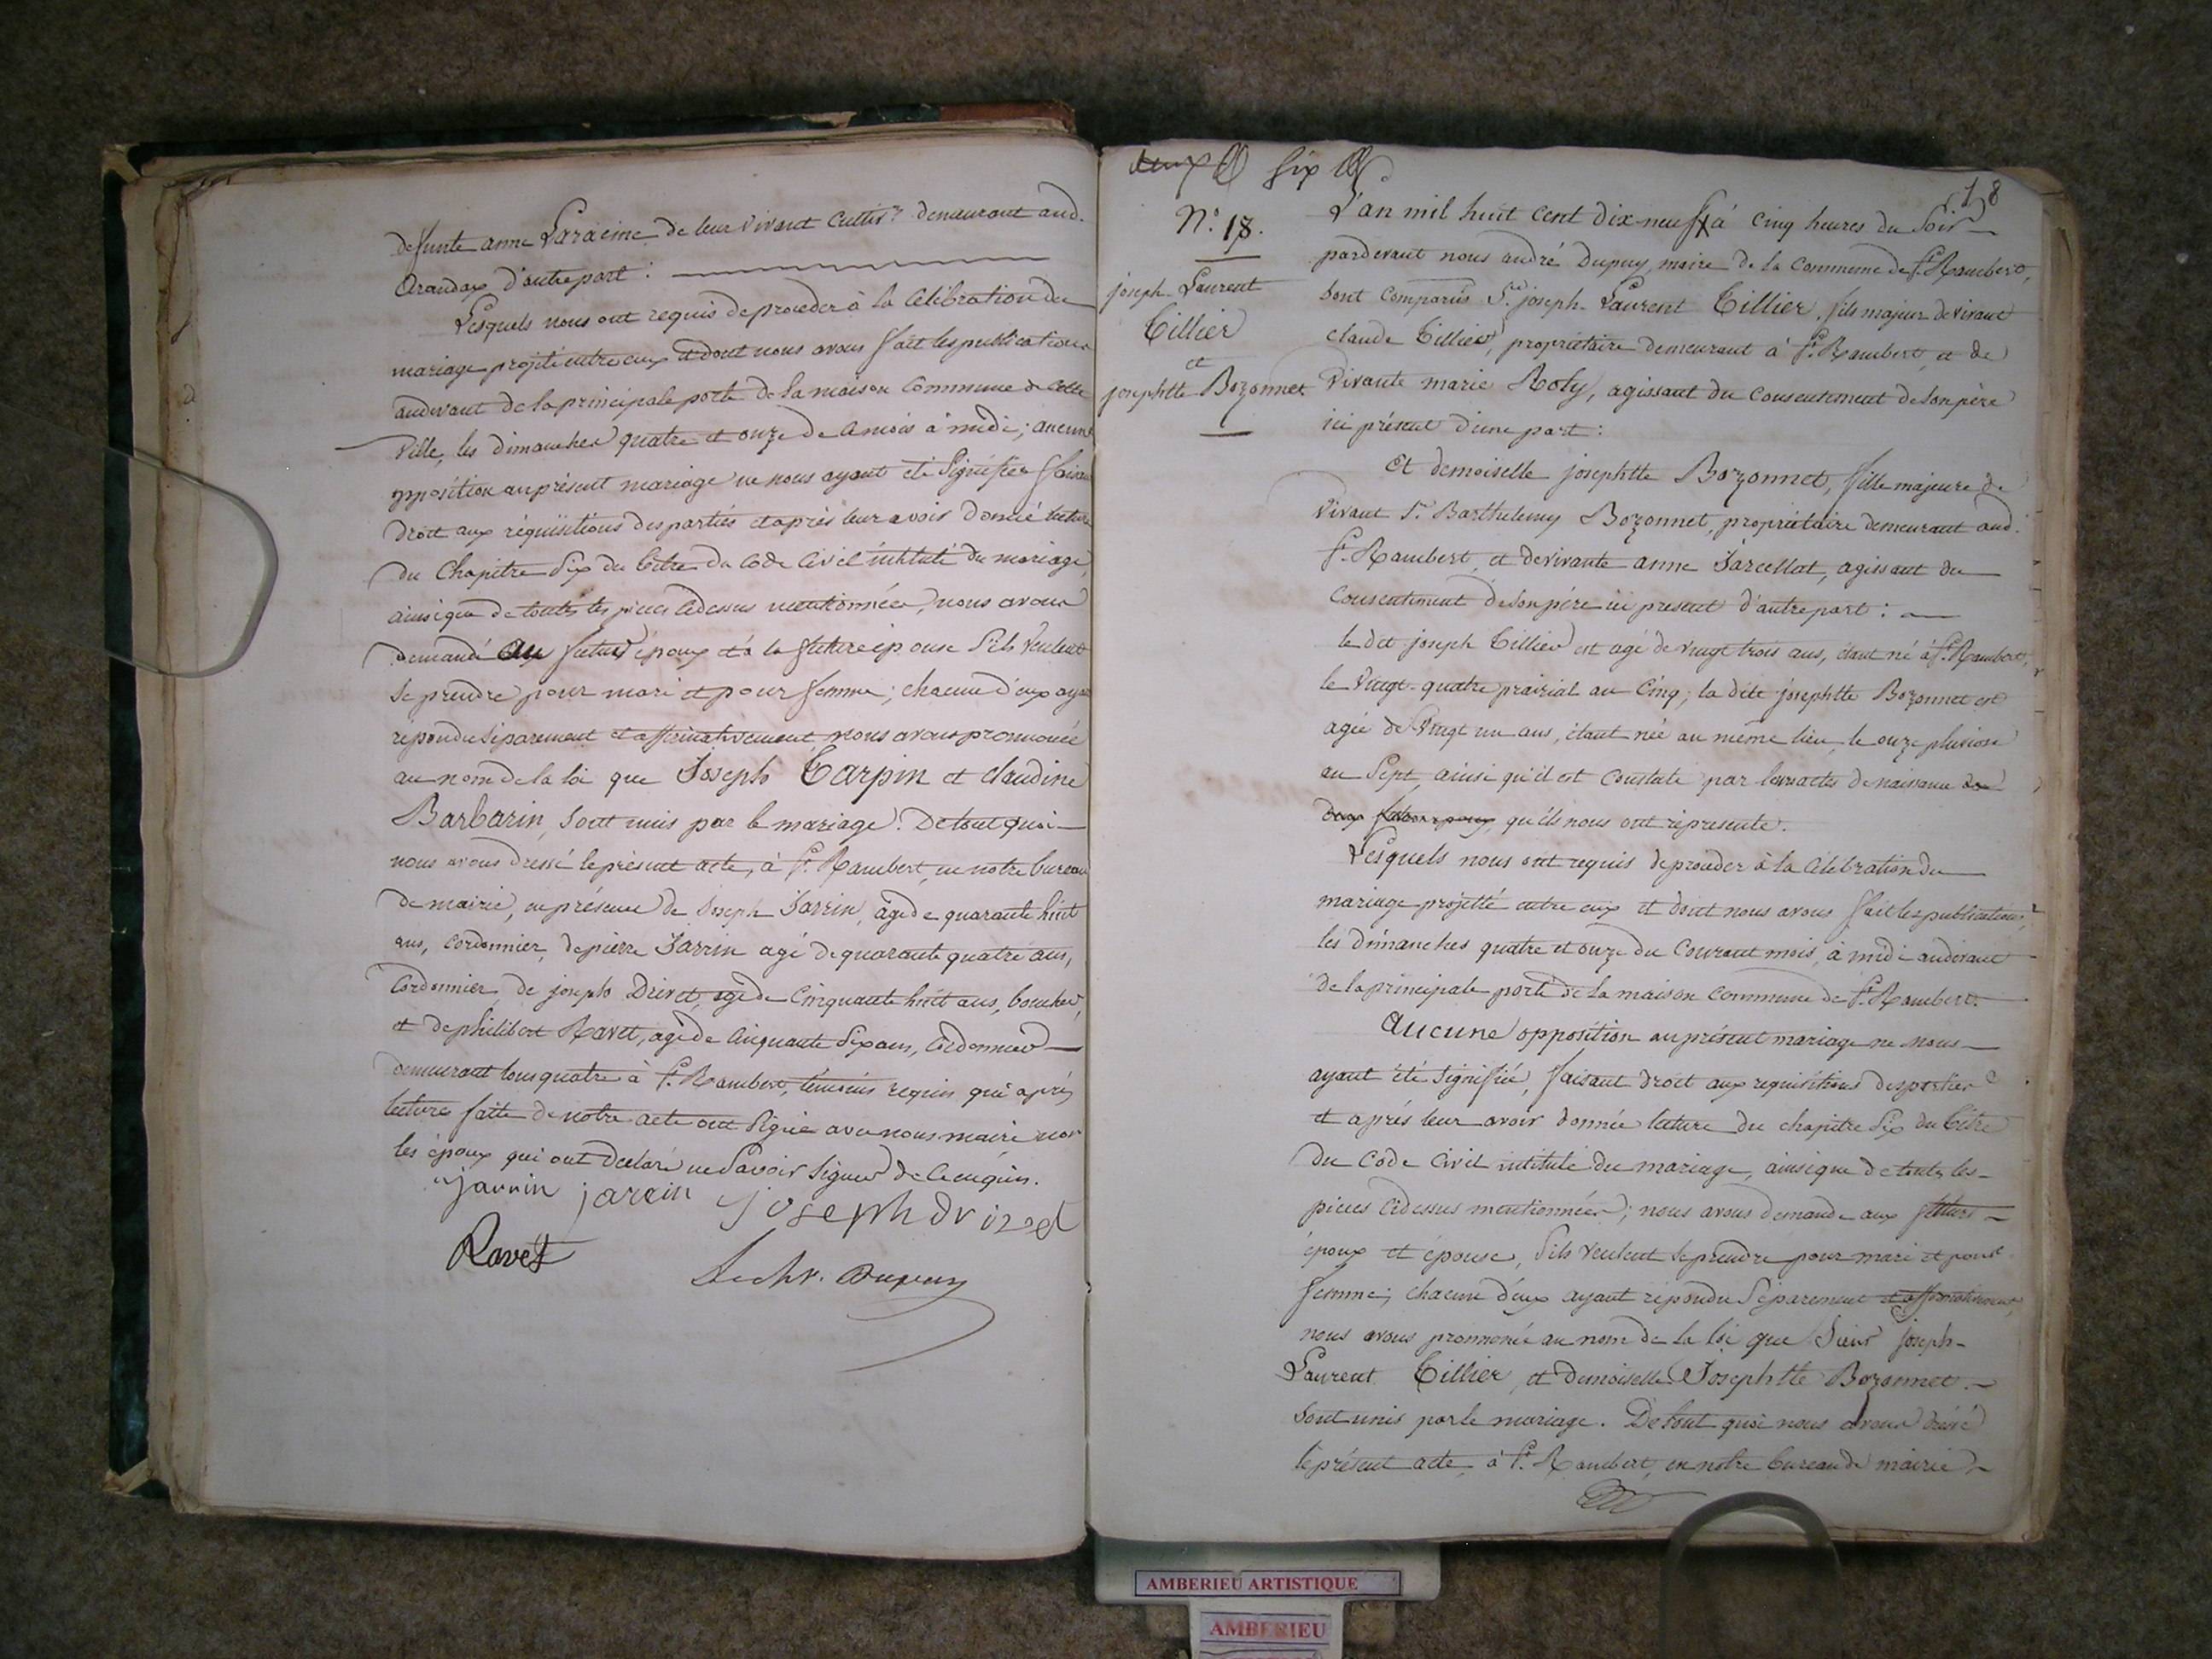 defunte anne Laracine de leur vivant cultivr demeurant aud.
Arandas d'autre part :
Lesquels nous ont requis de proceder à la célébration du
mariage projeté entre eux et dont nous avons fait les publications
audevant de la principale porte de la maison commune de cette
ville, les dimanches quatre et onze de ce mois à midi ; aucune
opposition au présent mariage ne nous ayant été signifiée faisant
droit aux réquisitions des parties et après leur avoir donné lecture
du Chapitre Six du titre du Code Civil intitulé du mariage,
ainsi que de toutes les pièces cidessus mentionnées, nous avons
demandé au futur époux et à la future épouse s'ils veulent
se prendre pour mari et pour femme ; chacun d'eux ayant
répondu séparement et affirmativement nous avons prononcé
au nom de la loi que Joseph Tarpin et claudine
Barbarin, sont unis par le mariage. De tout quoi
nous avons dressé le présent acte, à St. Rambert, en notre bureau
de mairie, en présence de Joseph Jarrin, agé de quarante huit
ans, cordonnier, de pierre Jarrin agé de quarante quatre ans,
cordonnier, de joseph Drivet, agé de Cinquante huit ans, boucher,
et de philibert Ravet, agé de Cinquante Six ans, cordonnier
demeurant tous quatre à St. Rambert, témoins requis qui après
lecture faite de notre acte ont signé avec nous maire non
les époux qui ont declaré ne Savoir Signer de ce enquis.
jarrin jarrin joseph drivet
Ravet
Le chr. Dupuy
deux six
18
N.o 18.
joseph-Laurent
Tillier
et
josephtte Bozonnet
L'an mil huit cent dix-neuf à cinq heures du Soir
pardevant nous andré Dupuy, maire de la commune de St. Rambert,
sont comparus Sr. joseph-Laurent Tillier, fils majeur de vivant
claude Tillier, propriétaire demeurant à St. Rambert, et de
vivante marie Roly, agissant du consentement de son père
ici présent d'une part :
Et demoiselle josephtte Bozonnet, fille majeure de
vivant Sr. Barthelemy Bozonnet, propriétaire demeurant aud.
St. Rambert, et de vivante anne Jarcellat, agissant du
consentement de son père ici present d'autre part :
le dit joseph Tillier est agé de vingt trois ans, étant né à St. Rambert,
le vingt-quatre prairial an Cinq ; la dite josephtte Bozonnet est
agée de vingt un ans, étant née au même lieu, le onze pluviose
an Sept, ainsi qu'il est constaté par leurs actes de naissance
qu'ils nous ont représenté.
Lesquels nous ont requis de proceder à la célébration du
mariage projetté entre eux et dont nous avons fait les publications,
les dimanches quatre et onze du courant mois, à midi audevant
de la principale porte de la maison commune de St. Rambert.
Aucune opposition au présent mariage ne nous
ayant été signifiée, faisant droit aux requisitions des parties
et après leur avoir donnée lecture du chapitre Six du titre
du Code Civil intitulé du mariage, ainsi que de toutes les
pièces cidessus mentionnées ; nous avons demandé aux futurs
époux et épouse, s'ils veulent se prendre pour mari et pour
femme ; chacun d'eux ayant répondu Séparement et affirmativement,
nous avons prononcé au nom de la loi que Sieur joseph-
Laurent Tillier, et demoiselle Josephtte Bozonnet
sont unis par le mariage. De tout quoi nous avons dressé
le présent acte, à St. Rambert, en notre bureau de mairie
AMBERIEU ARTISTIQUE
AMBERIEU